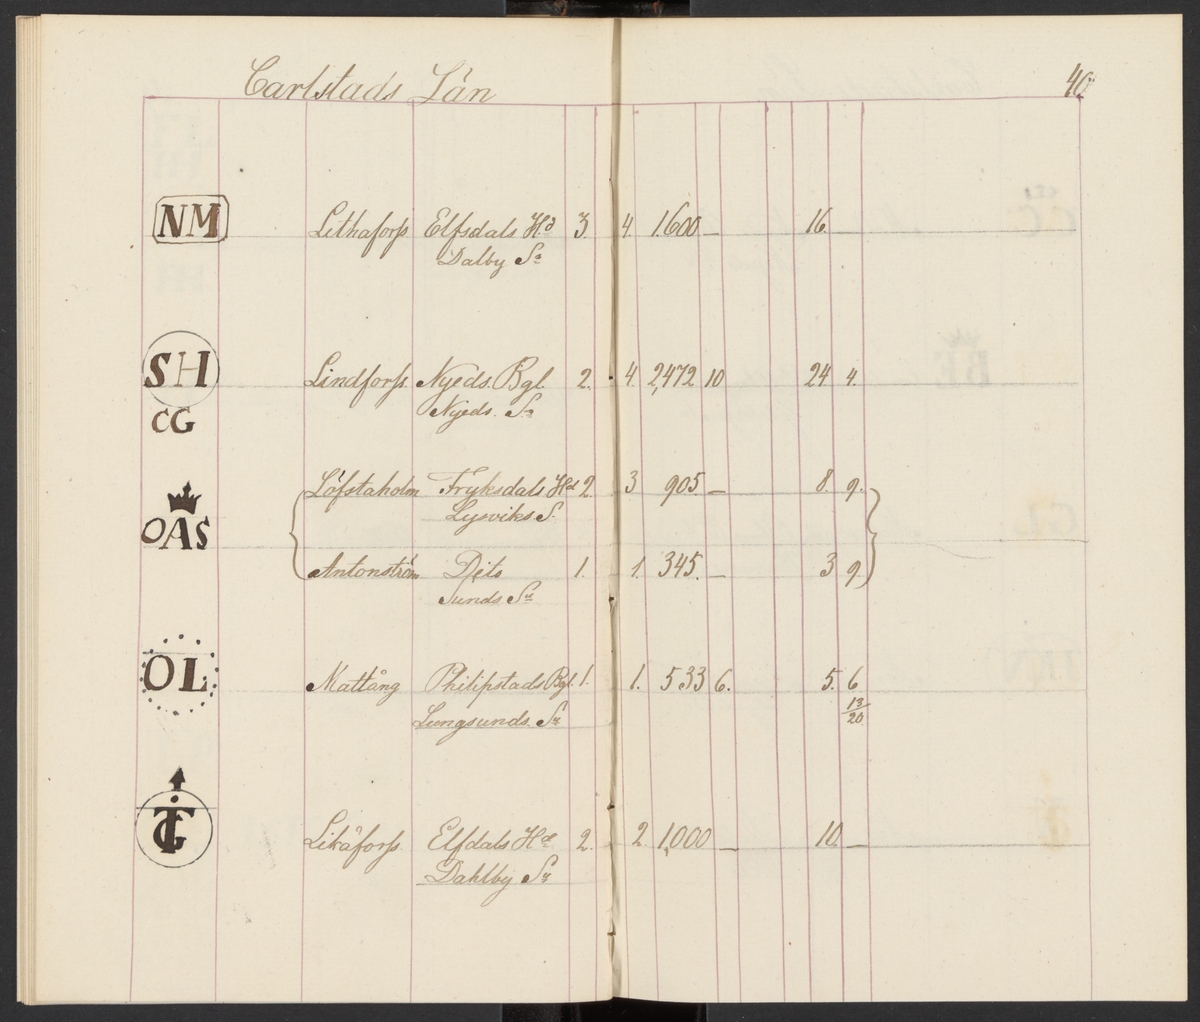 Carlstads Län 40
NM Lethaforss Elfsdals Hd 3. 4. 1,600 — 16. —
Dalby Sn
SH Lindforss Nyeds. Bgl. 2. 4. 2,472 10 24 4.
CG Nyeds. Sn
Löfstaholm Fryksdals Hd 2. 3 905. — 8. 9.
Lysviks S.
OAS
Antonström Dito 1. 1. 345. — 3 9.
Sunds Sn
OL Mattång Philipstads Bgl. 1. 1. 533 6. 5. 6
13/20
Lungsunds. Sn
Likåforss Elfdals Hd 2. 2. 1,000 — 10. —
Dahlby Sn